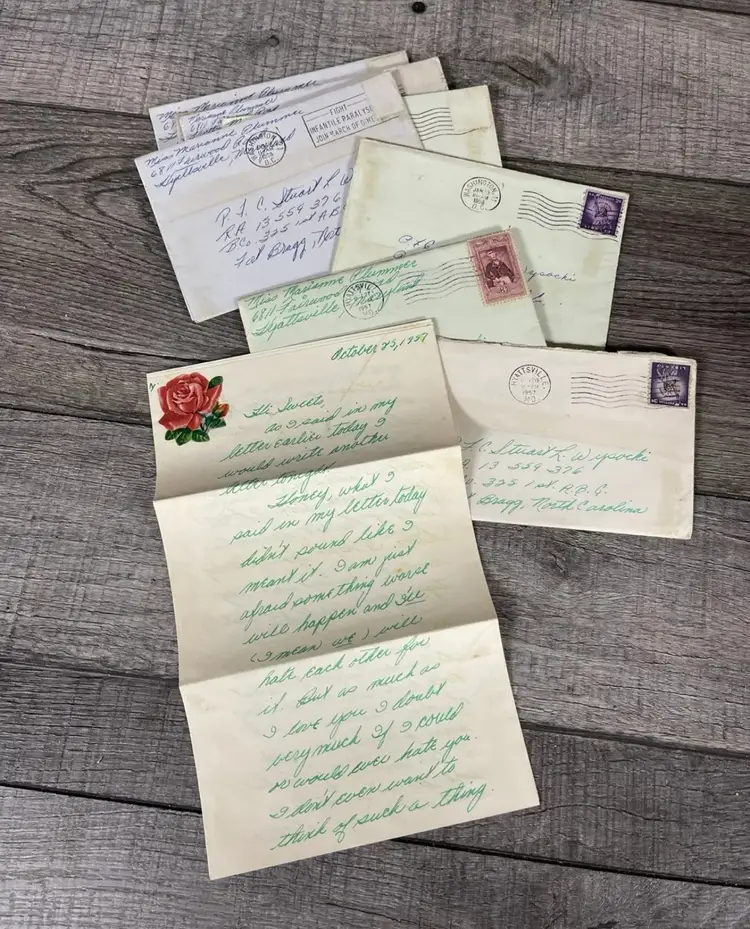 Miss Marianne Plummer
Miss Marianne Plummer
6811 Fairwood Road
Hyattsville, Maryland
WASHINGTON
D.C.
FIGHT
INFANTILE PARALYSIS
JOIN MARCH OF DIMES
P.F.C. Stuart L. W
R.A. 13 559 376
B Co. 325 1st A.B.
Fort Bragg, North
WASHINGTON
JAN
1958
D.C.
ysocki
Miss Marianne Plummer
6811 Fairwood Road
Hyattsville, Maryland
HYATTSVILLE
1957
MD.
HYATTSVILLE
1957
MD.
F.C. Stuart L. Wysocki
13 559 376
325 1st. A.B.G.
Bragg, North Carolina
October 25, 1957
Hi Sweets,
As I said in my
letter earlier today I
would write another
letter tonight.
Honey, what I
said in my letter today
didn't sound like I
meant it. I am just
afraid something worse
will happen and I'll
(I mean we) will
hate each other for
it. But as much as
I love you I doubt
very much if I could
or would ever hate you.
I don't even want to
think of such a thing.